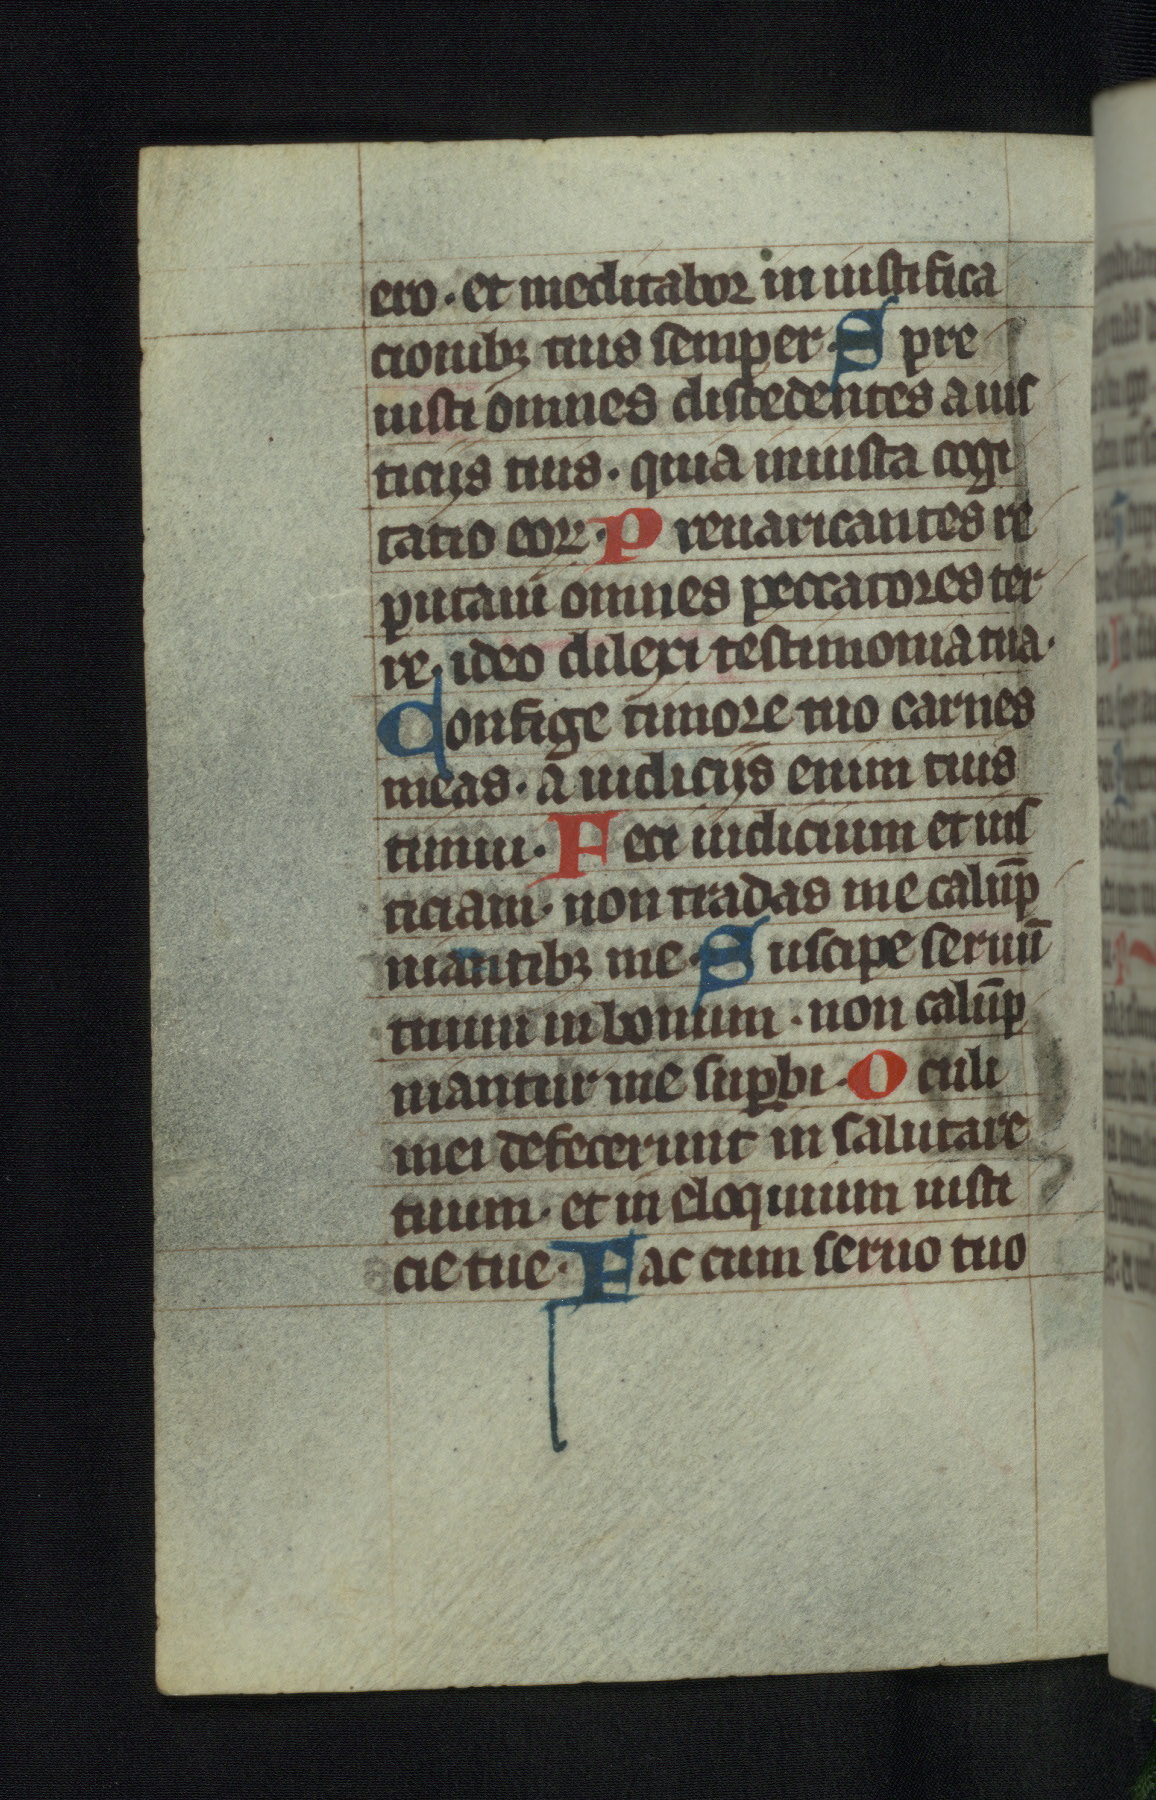 ero · et meditabor in iustifica
cionibꝫ tuis semper · S pre
uisti omnes discedentes a iuſ
ticijs tuis · quia iniusta cogi
tatio eoꝝ · P reuaricantes re
putaui omnes peccatores ter
re · ideo dilexi testimonia tua ·
Confige timore tuo carnes
meas · a iudicijs enim tuis
timui · F eci iudicium et iuſ
ticiam · non tradas me calūp
niantibꝫ me · S uscipe seruū
tuum in bonum · non calūp
niantur me suꝑbi · O culi
mei defecerunt in salutare
tuum · et in eloquium iusti
cie tue · F ac cum seruo tuo